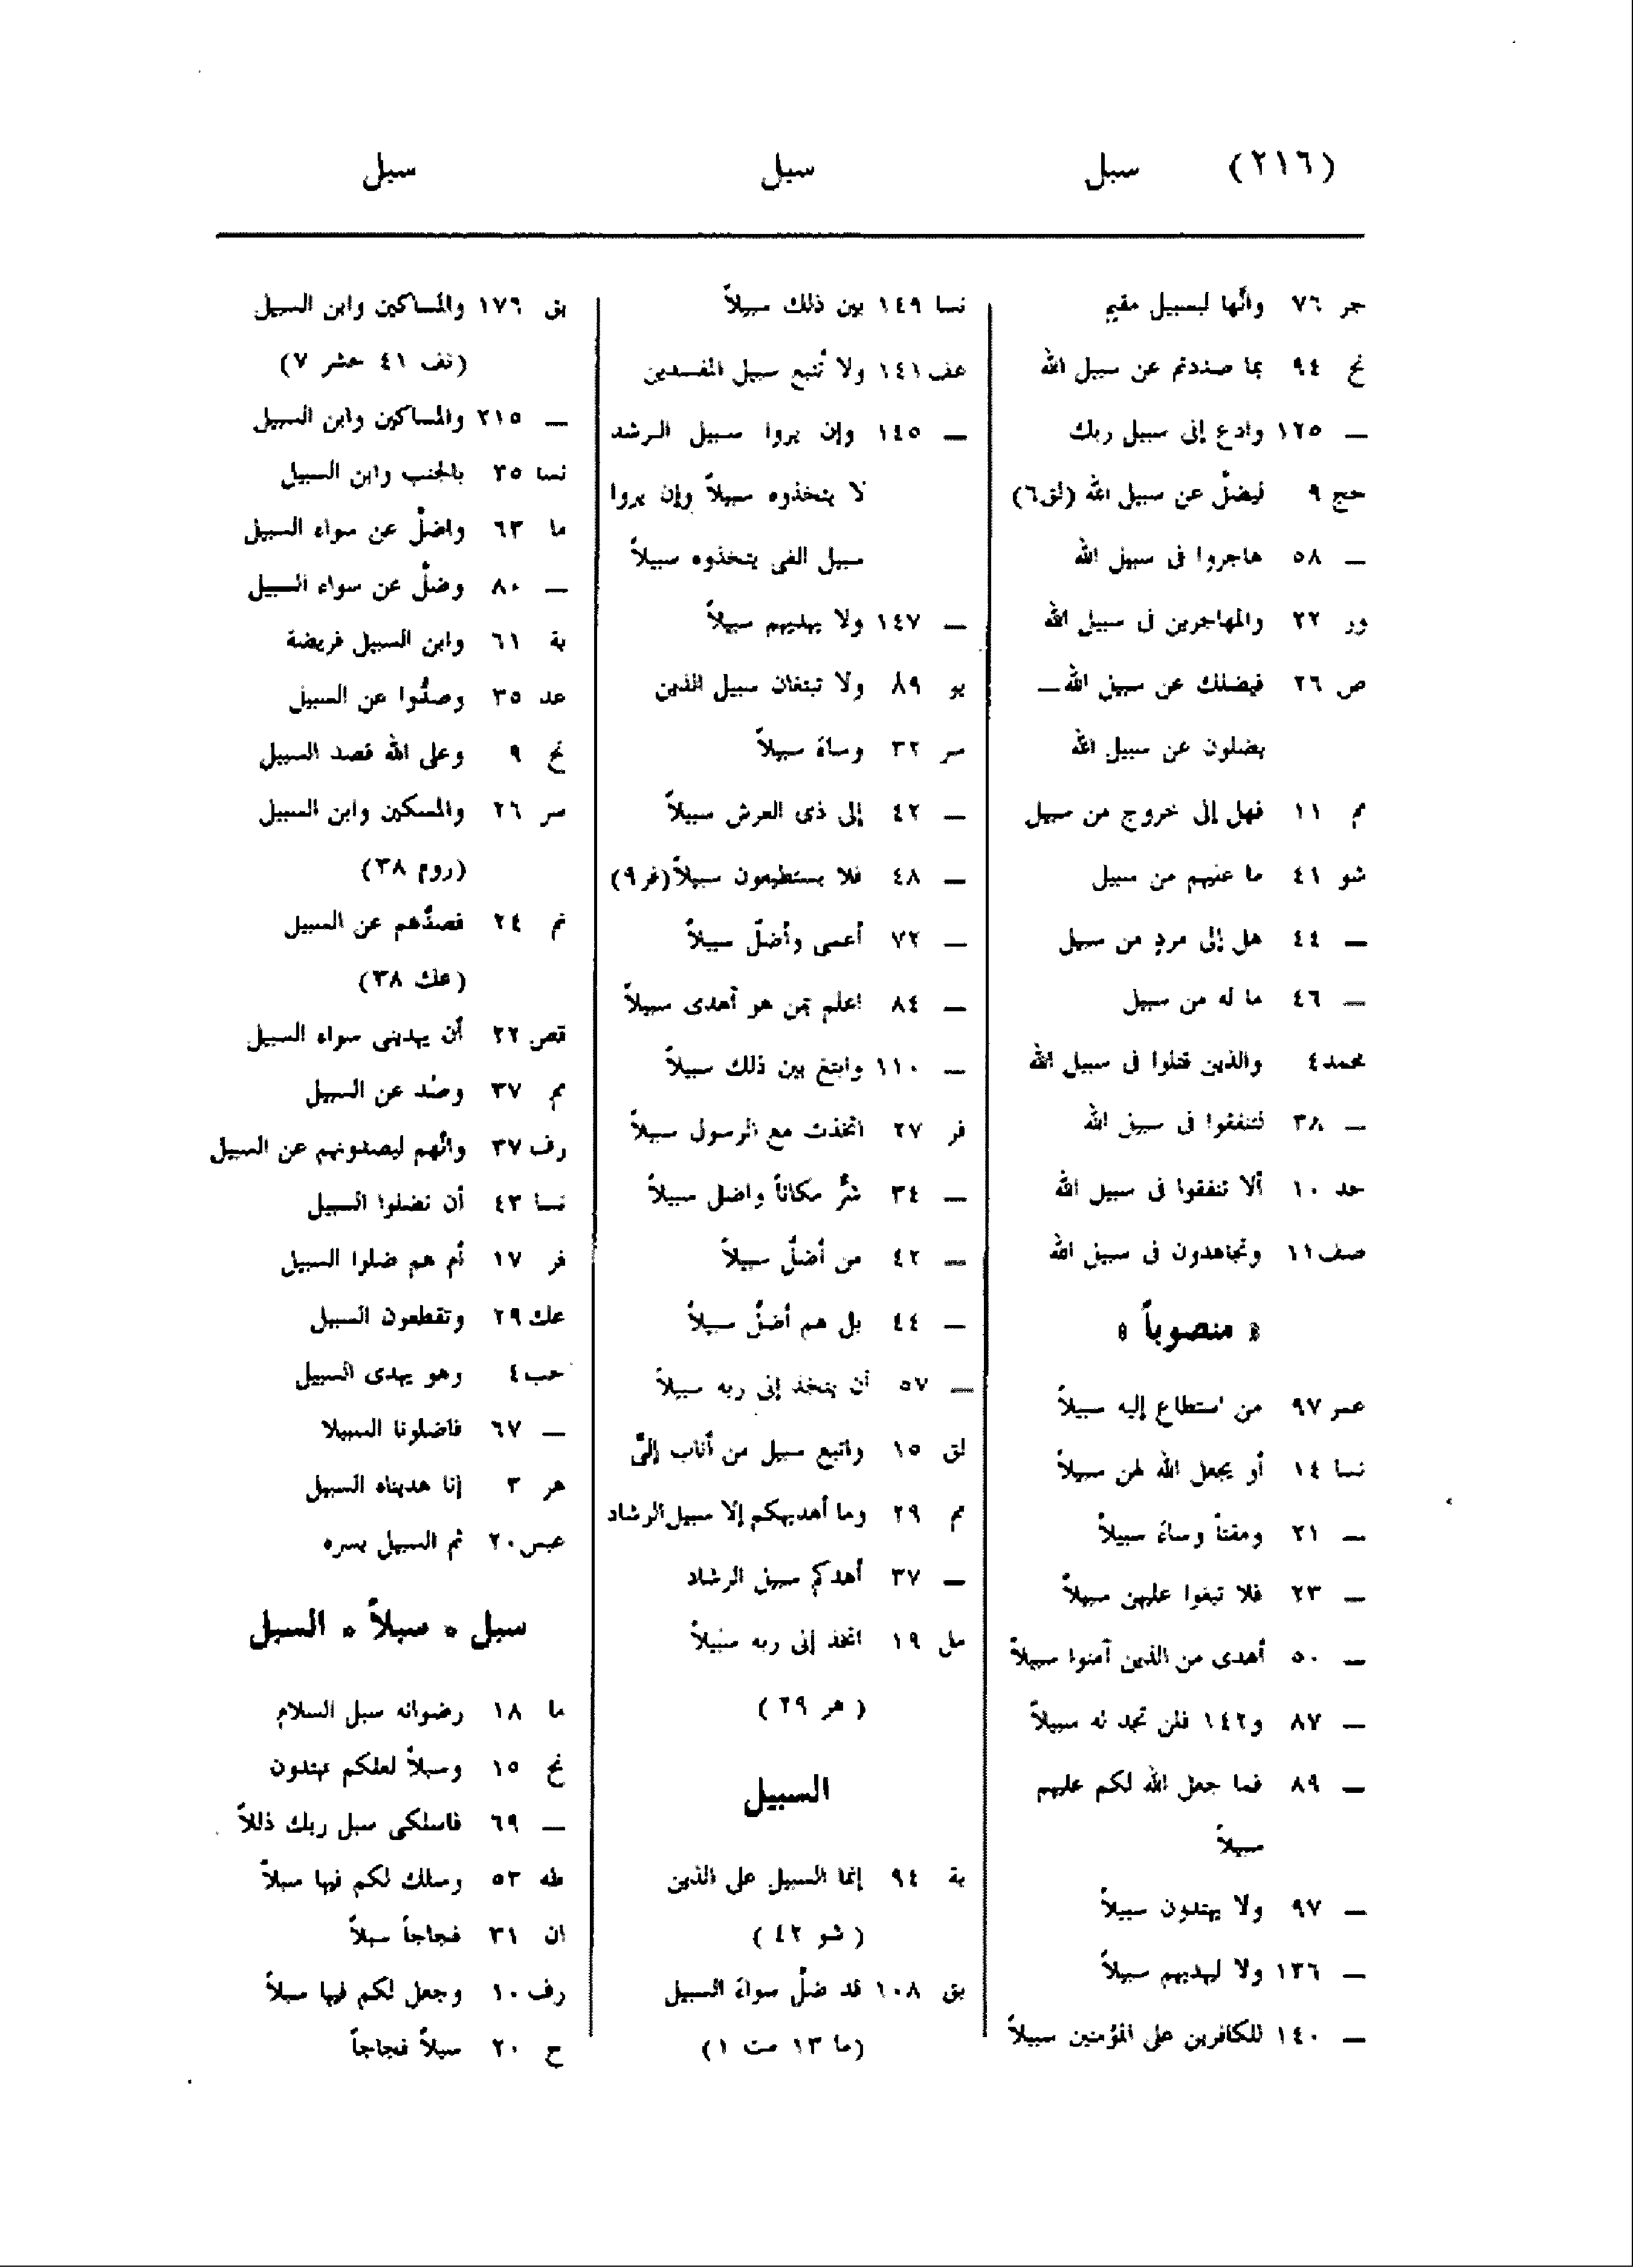 (٢١٦) سبل سبل سبل
جر ٧٦ وانّها لبسبيل مقيم
نح ٩٤ بما صددتم عن سبيل الله
— ١٢٥ وادع إلى سبيل ربك
حج ٩ ليضلّ عن سبيل الله (لق٦)
— ٥٨ هاجروا فى سبيل الله
ور ٢٢ والمهاجرين فى سبيل الله
ص ٢٦ فيضلك عن سبيل الله—
يضلون عن سبيل الله
مم ١١ فهل إلى خروج من سبيل
شو ٤١ ما عليهم من سبيل
— ٤٤ هل إلى مردٍ من سبيل
— ٤٦ ما له من سبيل
محمد٤ والذين قتلوا فى سبيل الله
— ٣٨ لتنفقوا فى سبيل الله
حد ١٠ ألا تنفقوا فى سبيل الله
صف١١ وتجاهدون فى سبيل الله
* منصوباً *
عمر ٩٧ من استطاع إليه سبيلاً
نسا ١٤ أو يجعل الله لهن سبيلاً
— ٢١ ومقتاً وساءَ سبيلاً
— ٢٣ فلا تبغوا عليهن سبيلاً
— ٥٠ أهدى من الذين آمنوا سبيلاً
— ٨٧ و١٤٢ فلن تجد له سبيلاً
— ٨٩ فما جعل الله لكم عليهم
سبيلاً
— ٩٧ ولا يهتدون سبيلاً
— ١٣٦ ولا ليهديهم سبيلاً
— ١٤٠ للكافرين على المؤمنين سبيلاً
نسا ١٤٩ بين ذلك سبيلاً
عف ١٤١ ولا تُتبع سبيل المفسدين
— ١٤٥ وإن يروا سبيل الرشد
لا يتخذوه سبيلاً وإن يروا
سبيل الغى يتخذوه سبيلاً
— ١٤٧ ولا يهديهم سبيلاً
يو ٨٩ ولا تبتغان سبيل الذين
سر ٣٢ وساءَ سبيلاً
— ٤٢ إلى ذى العرش سبيلاً
— ٤٨ فلا يستطيعون سبيلاً(فر٩)
— ٧٢ أعمى وأضلّ سبيلاً
— ٨٤ اعلم بمن هو أهدى سبيلاً
— ١١٠ وابتغ بين ذلك سبيلاً
فر ٢٧ اتخذت مع الرسول سبيلاً
— ٣٤ شرٌّ مكاناً واضل سبيلاً
— ٤٢ من أضلّ سبيلاً
— ٤٤ بل هم أضلّ سبيلاً
— ٥٧ أن يتخذ إلى ربه سبيلاً
لق ١٥ واتبع سبيل من أناب إلىّ
مم ٢٩ وما أهديكم إلا سبيل الرشاد
— ٣٧ أهدكم سبيل الرشاد
مل ١٩ اتخذ إلى ربه سبيلاً
( هر ٢٩ )
السبيل
بة ٩٤ إنما السبيل على الذين
( شو ٤٢ )
بق ١٠٨ قد ضلّ سواءَ السبيل
(ما ١٣ مت ١ )
بق ١٧٦ والمساكين وابن السبيل
(نف ٤١ حشر ٧)
— ٢١٥ والمساكين وابن السبيل
نسا ٣٥ بالجنب وابن السبيل
ما ٦٣ واضلّ عن سواء السبيل
— ٨٠ وضلّ عن سواء السبيل
بة ٦١ وابن السبيل فريضة
عد ٣٥ وصدُّوا عن السبيل
نح ٩ وعلى الله قصد السبيل
سر ٢٦ والمسكين وابن السبيل
(روم ٣٨)
نم ٢٤ فصدَّهم عن السبيل
(عك ٣٨)
قص ٢٢ أن يهدينى سواء السبيل
مم ٣٧ وصُد عن السبيل
رف ٣٧ وانّهم ليصدونهم عن السبيل
نسا ٤٣ أن تضلوا السبيل
فر ١٧ أم هم ضلوا السبيل
عك ٢٩ وتقطعون السبيل
حب٤ وهو يهدى السبيل
— ٦٧ فاضلونا السبيلا
هر ٣ إنا هديناه السبيل
عبس٢٠ ثم السبيل يسره
سبل * سبلاً * السبل
ما ١٨ رضوانه سبل السلام
نح ١٥ وسبلاً لعلكم تهتدون
— ٦٩ فاسلكى سبل ربك ذللاً
طه ٥٣ وسلك لكم فيها سبلاً
ان ٣١ فجاجاً سبلاً
رف ١٠ وجعل لكم فيها سبلاً
ح ٢٠ سبلاً فجاجاً